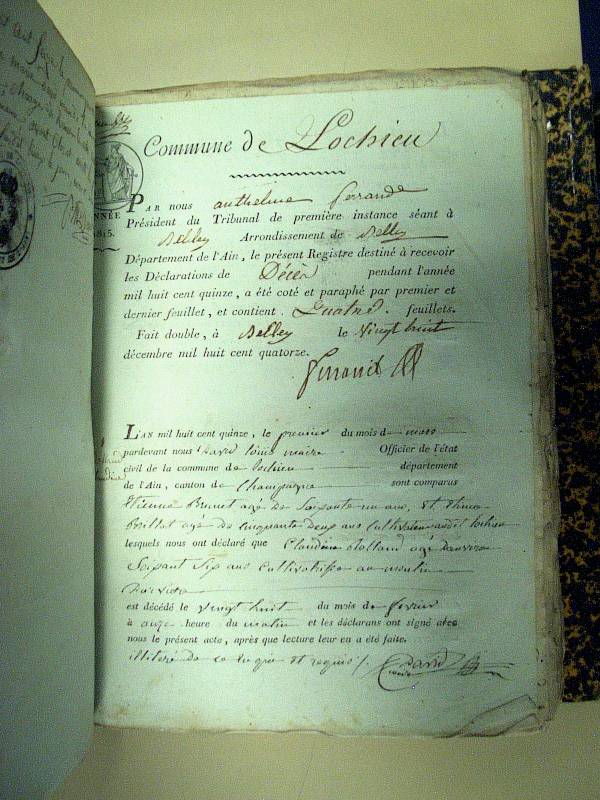 Commune de Lochieu
ANNÉE
1815.
PAR nous anthelme ferrand
Président du Tribunal de première instance séant à
Belley Arrondissement de Belley
Département de l'Ain, le présent Registre destiné à recevoir
les Déclarations de Décès pendant l'année
mil huit cent quinze, a été coté et paraphé par premier et
dernier feuillet, et contient quatre feuillets.
Fait double, à Belley le vingt huit
décembre mil huit cent quatorze.
ferrand
L'AN mil huit cent quinze, le premier du mois de mars
pardevant nous David louis maire Officier de l'état
civil de la commune de Lochieu département
de l'Ain, canton de Champagne sont comparus
Etienne Brunet age de Soixante un ans, et
age de cinquante deux ans Cultivateurs audit lochieu
lesquels nous ont déclaré que Claudine Rolland agé denviron
Soixant Six ans cultivatrisse au moulin
est décédé le vingt huit du mois de fevrier
à onze heure du matin et les déclarans ont signé avec
nous le présent acte, après que lecture leur en a été faite.
illitéré de ce enquis et requis
David
maire